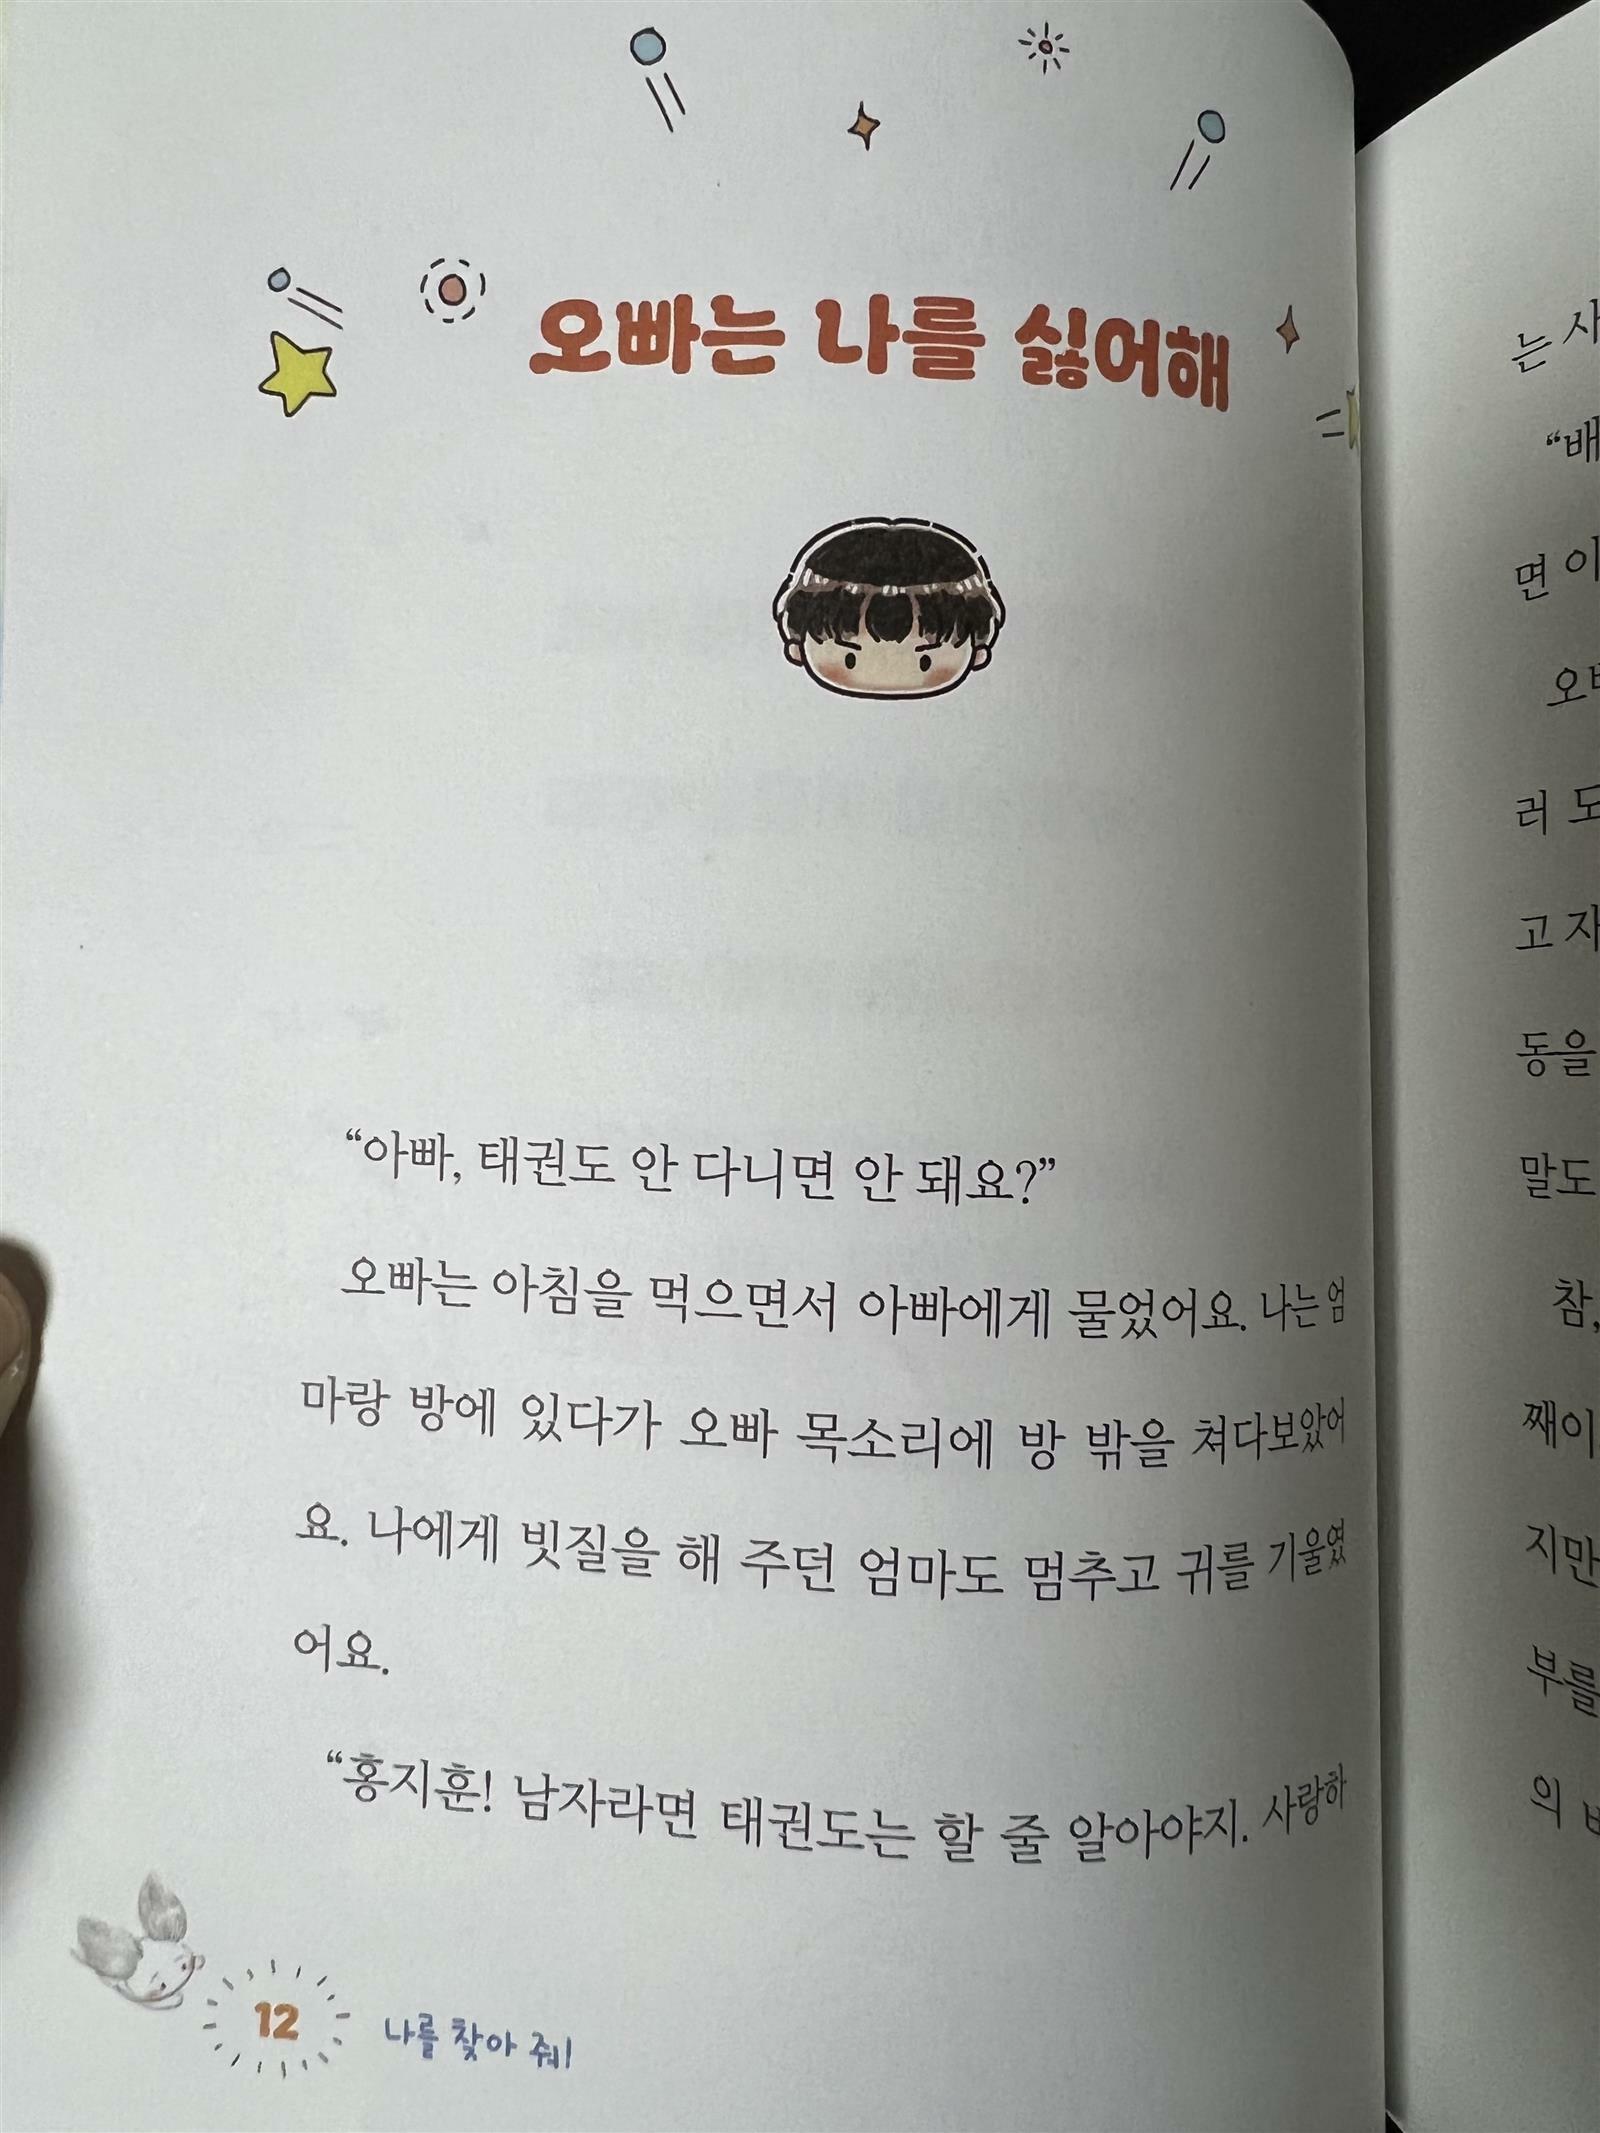 오빠는 나를 싫어해
“아빠, 태권도 안 다니면 안 돼요?”
오빠는 아침을 먹으면서 아빠에게 물었어요. 나는 엄
마랑 방에 있다가 오빠 목소리에 방 밖을 쳐다보았어
요. 나에게 빗질을 해 주던 엄마도 멈추고 귀를 기울였
어요.
“홍지훈! 남자라면 태권도는 할 줄 알아야지. 사랑하
12 나를 찾아 줘!
는 사
“배
면 이
러 도
고 자
동을
말도
참,
째이
지만
부를
의